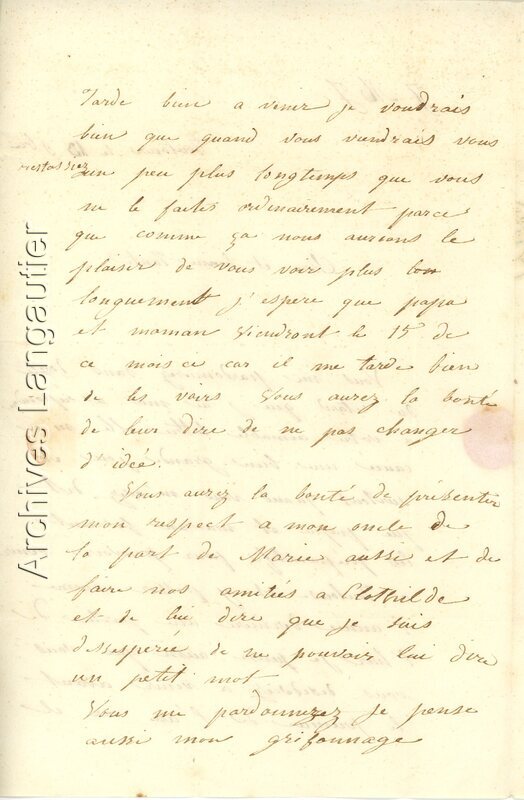 tarde bien a venir je voudrais
bien que quand vous viendrais vous
restassiez
un peu plus longtemps que vous
ne le faites ordinairement parce
que comme ça nous aurions le
plaisir de vous voir plus lon
longuement j'espere que papa
et maman viendront le 15 de
ce mois ci car il me tarde bien
de les voirs Vous aurez la bonté
de leur dire de ne pas changer
d'idéé.
Vous aurez la bonté de présenter
mon respect a mon oncle de
la part de Marie aussi et de
faire nos amitiés a Clothilde
et de lui dire que je suis
dessesperée de ne pouvoir lui dire
un petit mot
Vous me pardonnerez je pense
aussi mon grifonnage
Archives Langautier